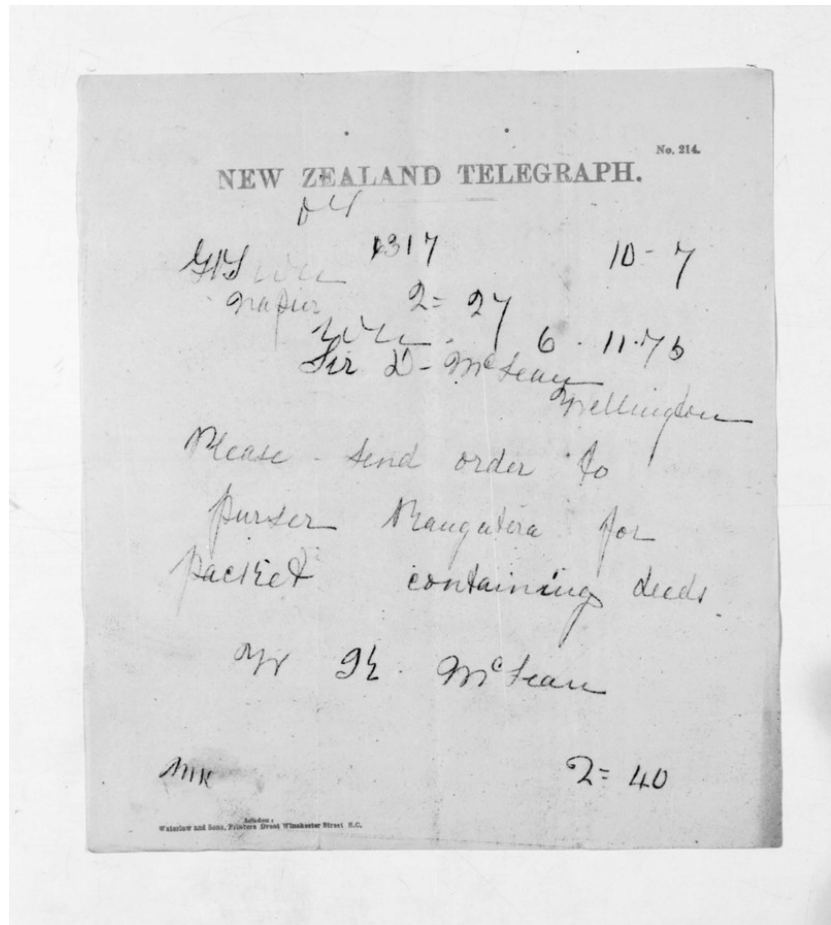 No. 214.
NEW ZEALAND TELEGRAPH.
1317 10-7
Napier 2=27
6.11.76
Sir D- McLean
Wellington
Please send order to
purser Rangatira for
packet containing deeds
McLean
2=40
London:
Waterlow and Sons, Printers Great Winchester Street E.C.